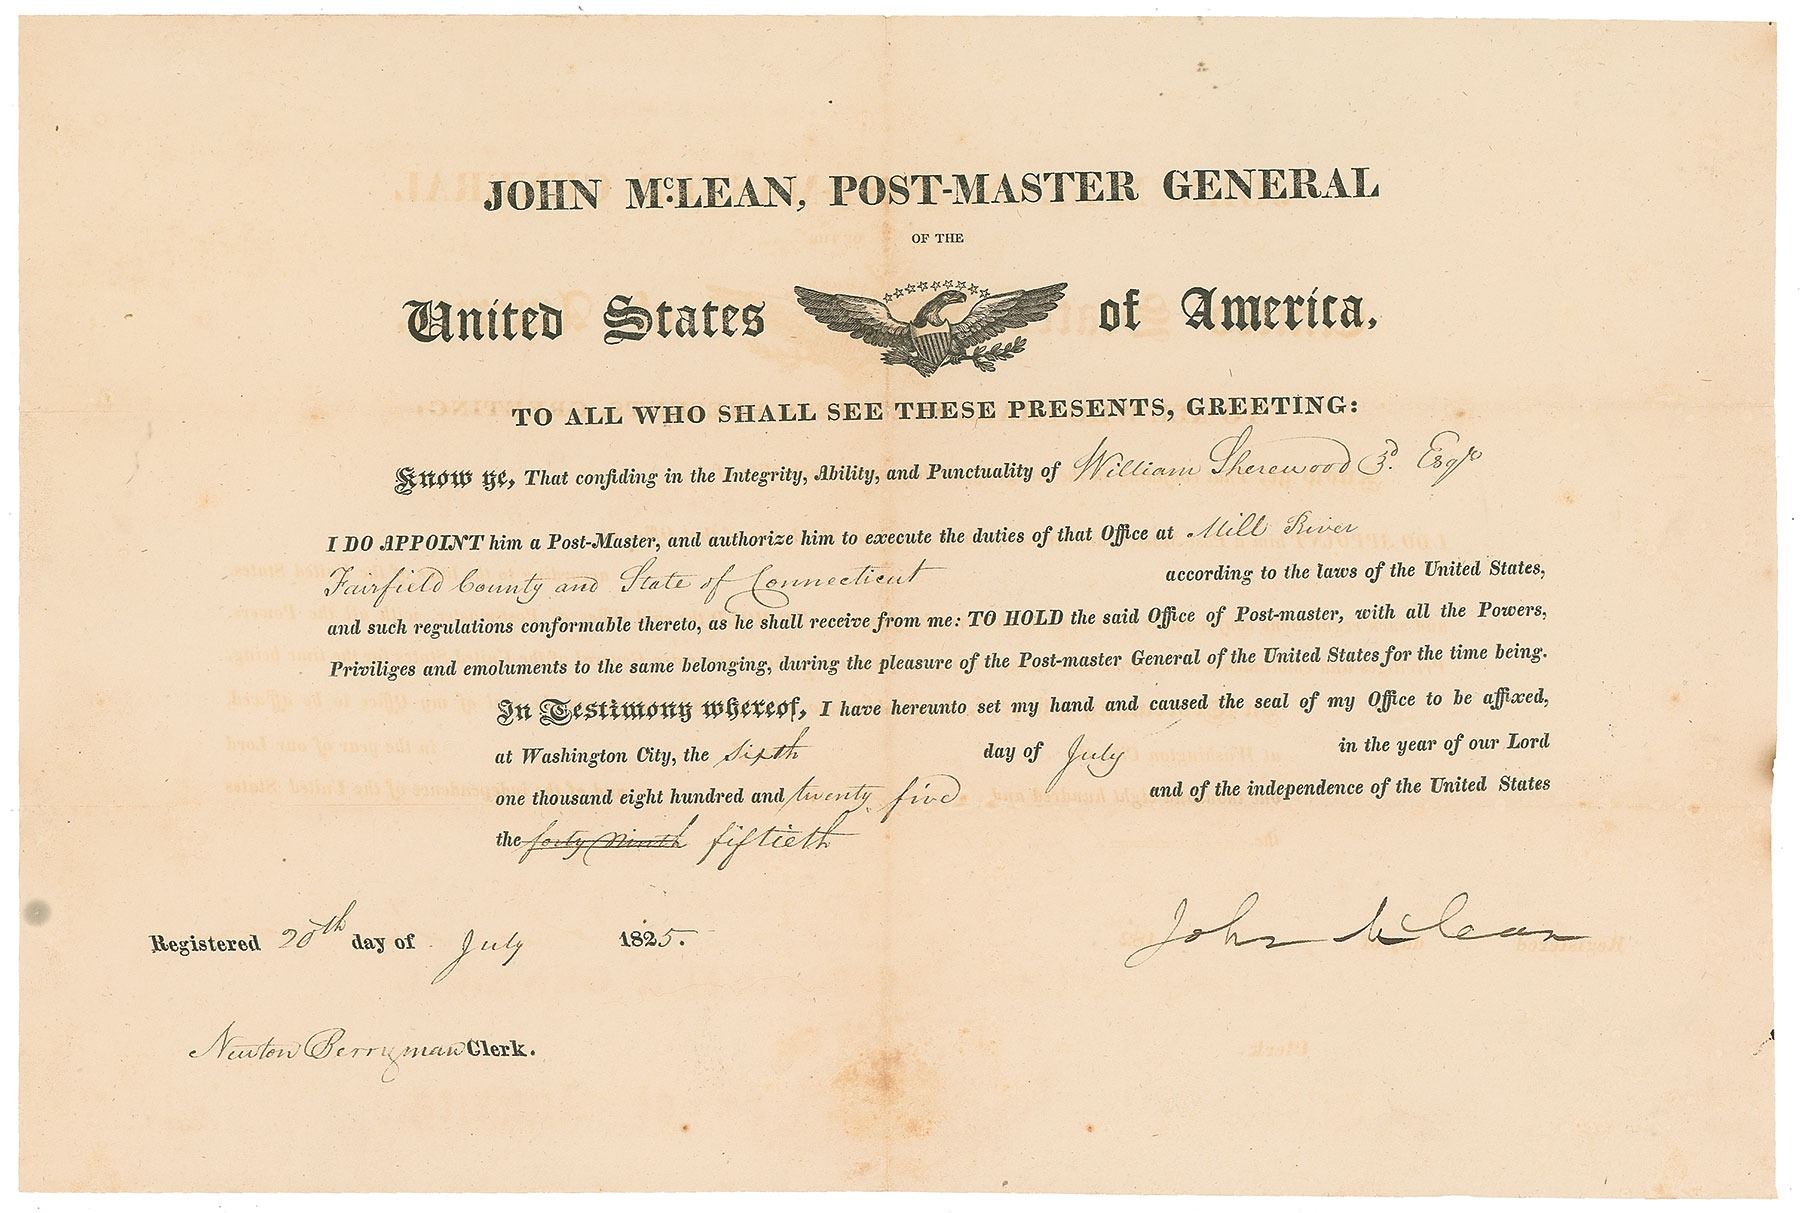 JOHN McLEAN, POST-MASTER GENERAL
OF THE
United States of America,
TO ALL WHO SHALL SEE THESE PRESENTS, GREETING:
Know ye, That confiding in the Integrity, Ability, and Punctuality of William Sherewood 3d. Esqr
I DO APPOINT him a Post-Master, and authorize him to execute the duties of that Office at Mill River
Fairfield County and State of Connecticut according to the laws of the United States,
and such regulations conformable thereto, as he shall receive from me: TO HOLD the said Office of Post-master, with all the Powers,
Priviliges and emoluments to the same belonging, during the pleasure of the Post-master General of the United States for the time being.
In Testimony whereof, I have hereunto set my hand and caused the seal of my Office to be affixed,
at Washington City, the sixth day of July in the year of our Lord
one thousand eight hundred and twenty five and of the independence of the United States
the forty ninth fiftieth
Registered 20th day of July 1825.
John McLean
Newton Berryman Clerk.